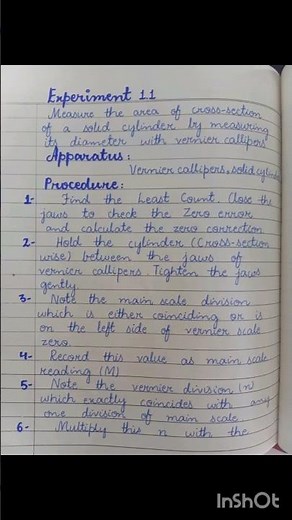 Experiment 1.1
Measure the area of cross-section
of a solid cylinder by measuring
its diameter with vernier callipers
Apparatus:
Vernier callipers, solid cylinder
Procedure:
1- Find the Least Count. Close the
jaws to check the Zero error
and calculate the zero correction
2- Hold the cylinder (Cross-section
wise) between the jaws of
vernier callipers. Tighten the jaws
gently.
3- Note the main scale division
which is either coinciding or is
on the left side of vernier scale
zero.
4- Record this value as main scale
reading (M)
5- Note the vernier division (n)
which exactly coincides with any
one division of main scale.
6- Multiply this n with the
InShOt